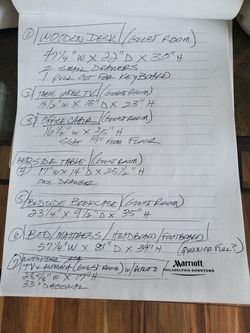 ① WOODEN DESK (GUEST ROOM)
47 1/4" W X 22" D X 30" H
2 SMALL DRAWERS
1 PULL OUT FOR KEYBOARD
② TABLE UNDER TV (GUESTROOM)
15" D X 23" H
③ OFFICE CHAIR (GUEST ROOM)
16 1/2" W X 35" H
SEAT 19" FROM FLOOR
BEDSIDE TABLE (GUEST ROOM)
17" W X 14" D X 25 1/2" H
ONE DRAWER
⑤ BEDSIDE BOOKCASE (GUEST ROOM)
23 1/4" X 9 1/2" D X 35" H
⑥ BED/MATTRESS/HEADBOARD/FOOTBOARD
57 1/4" W X 81" D X 39" H (QUEEN OR FULL?)
⑦ TV + ANTENNA (GUEST ROOM)
Marriott
PHILADELPHIA DOWNTOWN
33" DIAGONAL